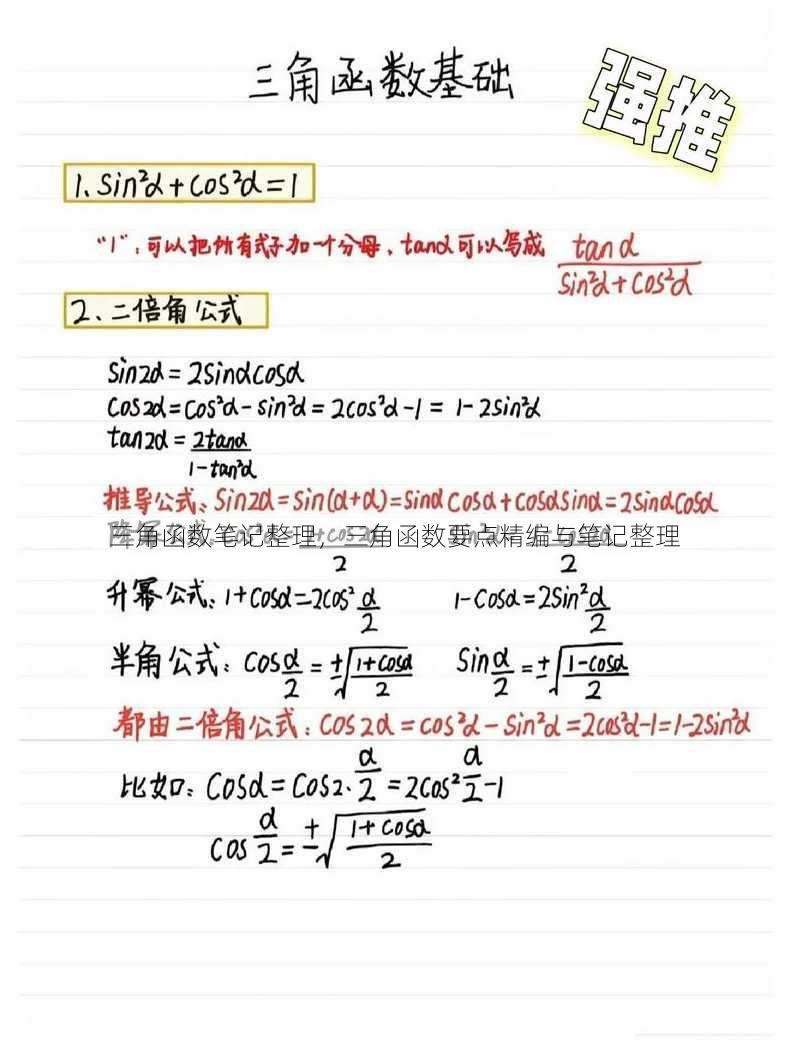 三角函数基础
强推
1、sin²α+cos²α=1
"1"：可以把所有式子加一个分母、tanα可以写成 tanα/sin²α+cos²α
2、二倍角公式
sin2α=2sinαcosα
cos2α=cos²α-sin²α=2cos²α-1=1-2sin²α
tan2α=2tanα/1-tan²α
推导公式：sin2α=sin(α+α)=sinαcosα+cosαsinα=2sinαcosα
三角函数笔记整理，三角函数要点精编与笔记整理
升幂公式：1+cosα=2cos²α/2 1-cosα=2sin²α/2
半角公式：cosα/2=±√1+cosα/2 sinα/2=±√1-cosα/2
都由二倍角公式：cos2α=cos²α-sin²α=2cos²α-1=1-2sin²α
比如：cosα=cos2·α/2=2cos²α/2-1
cosα/2=±√1+cosα/2